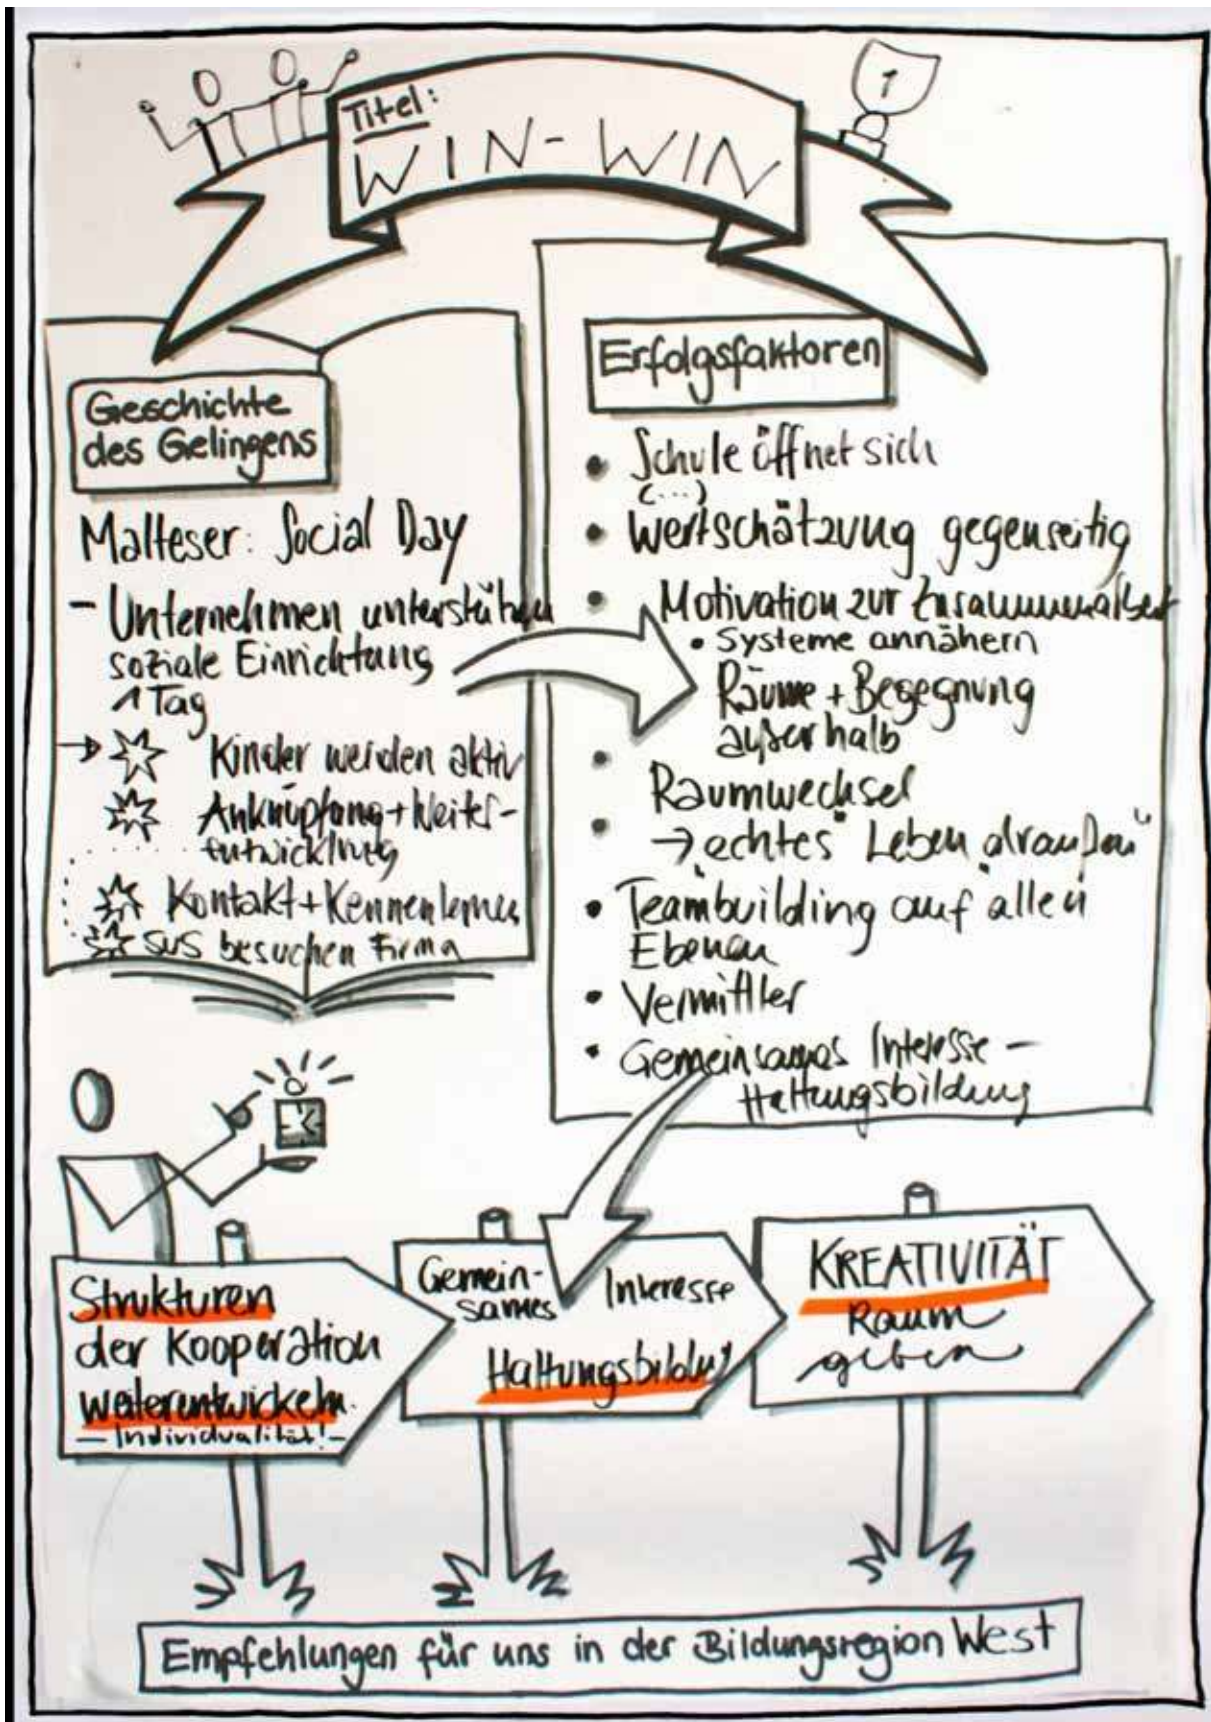 Titel:
WIN-WIN
1
Geschichte
des Gelingens
Malteser: Social Day
- Unternehmen unterstützen
soziale Einrichtung
1 Tag
→ Kinder werden aktiv
Anknüpfung + Weiter-
entwicklung
Kontakt + Kennenlernen
SuS besuchen Firma
Erfolgsfaktoren
• Schule öffnet sich
(...)
• Wertschätzung gegenseitig
• Motivation zur Zusammenarbeit
• Systeme annähern
Räume + Begegnung
außerhalb
• Raumwechsel
• → "echtes" Leben "draußen"
• Teambuilding auf allen
Ebenen
• Vermittler
• Gemeinsames Interesse -
Haltungsbildung
Strukturen
der Kooperation
weiterentwickeln.
- Individualität! -
Gemein-
sames Interesse
Haltungsbildung
KREATIVITÄT
Raum
geben
Empfehlungen für uns in der Bildungsregion West